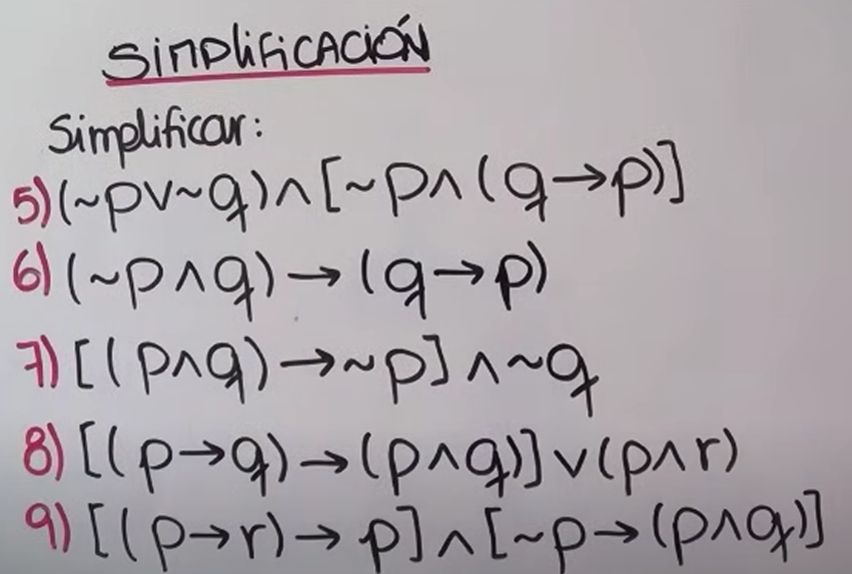 SIMPLIFICACIÓN
Simplificar:
5) (~p∨~q)∧[~p∧(q→p)]
6) (~p∧q)→(q→p)
7) [(p∧q)→~p]∧~q
8) [(p→q)→(p∧q)]∨(p∧r)
9) [(p→r)→p]∧[~p→(p∧q)]